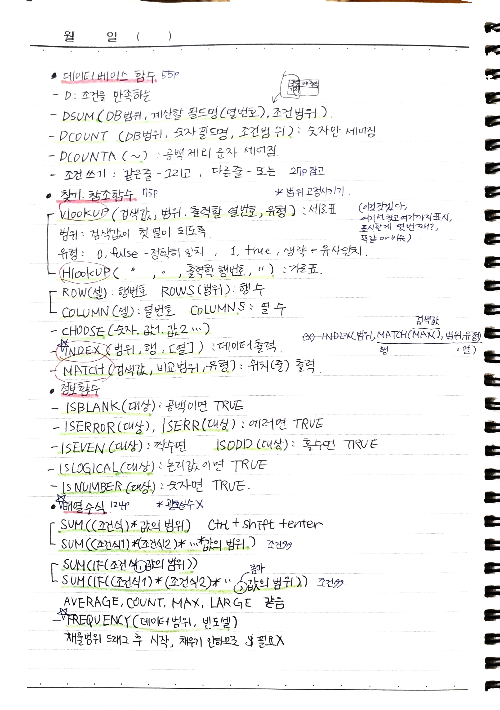 월 일 ( )
• 데이터베이스 함수 55p
- D : 조건을 만족하는
- DSUM (DB범위, 계산할 필드명(열번호), 조건범위)
- DCOUNT (DB범위, 숫자필드명, 조건범위) : 숫자만 세어짐
- DCOUNTA (~) : 공백 제외 문자 세어짐.
- 조건쓰기 : 같은줄 - 그리고, 다른줄 - 또는 25p 참고
• 찾기, 참조함수 75p * 범위 고정시키기.
VLOOKUP (검색값, 범위, 출력할 열번호, 유형) : 세로표
범위 : 검색값이 첫 열이 되도록
유형 : 0, false - 정확히 일치, 1, true, 생략 - 유사일치.
HlookUP ( " , " , 출력할 행번호, " ) : 가로표.
ROW(셀) : 행번호 ROWS(범위) : 행 수
COLUMN(셀) : 열번호 COLUMNS : 열 수
- CHOOSE (숫자, 값1, 값2 ...)
검색값
- INDEX (범위, 행, [열]) : 데이터 출력
ex) INDEX(범위, MATCH(MAX), 범위, 유형)
행 , 열)
- MATCH (검색값, 비교범위, 유형) : 위치(줄) 출력
• 정보함수
- ISBLANK (대상) : 공백이면 TRUE
- ISERROR (대상), ISERR(대상) : 에러면 TRUE
- ISEVEN (대상) : 짝수면 ISODD (대상) : 홀수면 TRUE
- ISLOGICAL (대상) : 논리값이면 TRUE
- ISNUMBER (대상) : 숫자면 TRUE.
• 배열수식 124p
SUM((조건식)*값의 범위) Ctrl + shift + enter
SUM((조건식1)*(조건식2)* ... *값의 범위)
SUM(IF(조건식, 값의 범위))
SUM(IF((조건식1)*(조건식2)* ·· , 값의 범위))
AVERAGE, COUNT, MAX, LARGE 같음
- FREQUENCY (데이터범위, 빈도셀)
채울범위 드래그 후 시작, 채우기 안하므로 $ 필요X